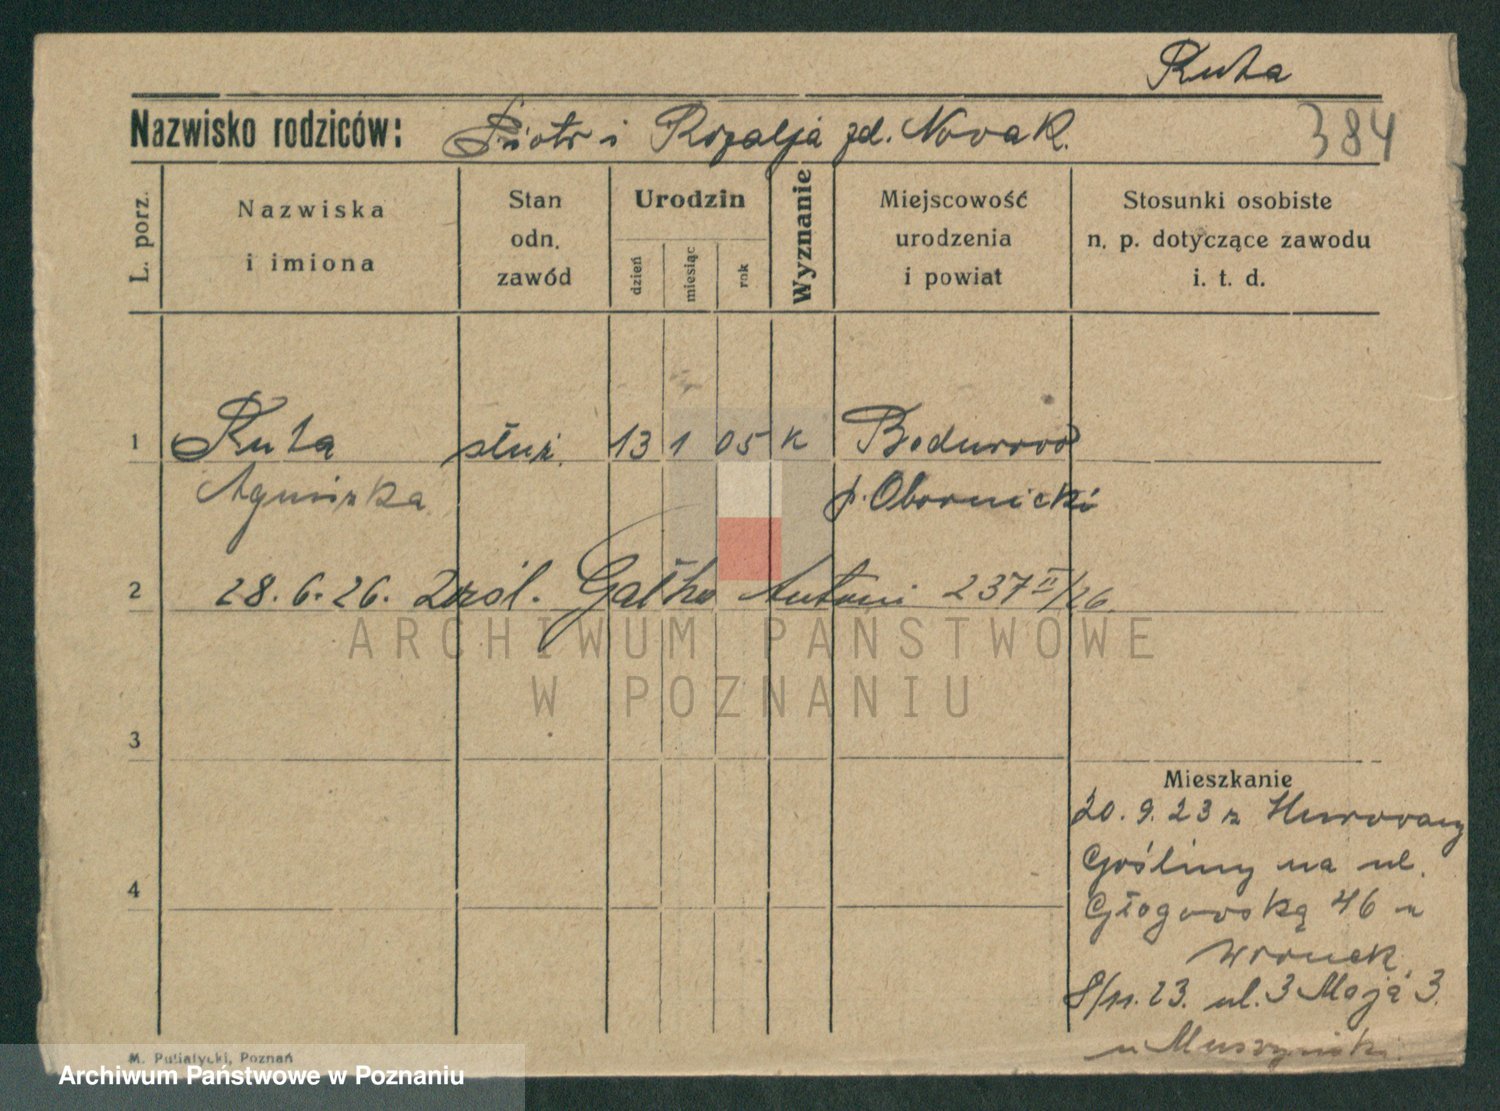 Ruta
Nazwisko rodziców: Piotr i Rozalja zd. Novak.
384
L. porz.
Nazwiska
i imiona
Stan
odn.
zawód
Urodzin
dzień
miesiąc
rok
Wyznanie
Miejscowość
urodzenia
i powiat
Stosunki osobiste
n. p. dotyczące zawodu
i. t. d.
1 Ruta służ. 13 1 05 k
Agniszka p. Obornicki
2 28.6.26. Antoni 237 II/26.
ARCHIWUM PAŃSTWOWE
W POZNANIU
3
Mieszkanie
20. 9. 23 z Murowany
Gośliny na ul.
4
Głogowską 46 u
Wronek.
8/11. 23. ul. 3 Maja 3.
u Muszyński.
M. Putiatycki, Poznań
Archiwum Państwowe w Poznaniu